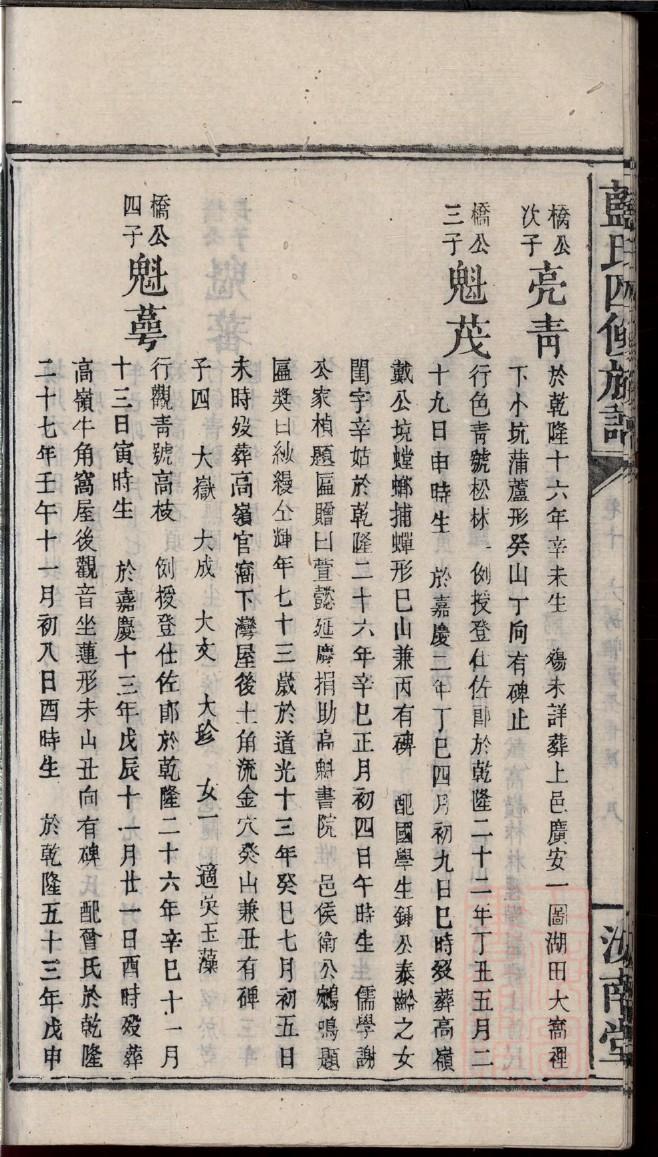 藍氏四修族譜
汝南堂
橋公
次子
亮青
於乾隆十六年辛未生 殤未詳葬上邑廣安一圖湖田大窩裡
下小坑蒲蘆形癸山丁向有碑止
橋公
三子
魁茂
行色青號松林 例授登仕佐郎於乾隆二十二年丁丑五月二
十九日申時生 於嘉慶二年丁巳四月初九日巳時歿葬高嶺
戴公境螳螂捕蟬形巳山兼丙有碑 配國學生鍾公泰齡之女
閨字辛姑於乾隆二十六年辛巳正月初四日午時生 儒學謝
公家楨題匾贈曰萱懿延慶捐助高魁書院 邑侯衛公鵷鳴題
匾獎曰紗縵仝輝年七十三歲於道光十三年癸巳七月初五日
未時歿葬高嶺官窩下灣屋後土角流金穴癸山兼丑有碑
子四 大嶽 大成 大文 大珍 女一 適吳玉藻
橋公
四子
魁萼
行觀青號高枝 例授登仕佐郎於乾隆二十六年辛巳十一月
十三日寅時生 於嘉慶十三年戊辰十一月廿一日酉時歿葬
高嶺牛角窩屋後觀音坐蓮形未山丑向有碑 配曾氏於乾隆
二十七年壬午十一月初八日酉時生 於乾隆五十三年戊申